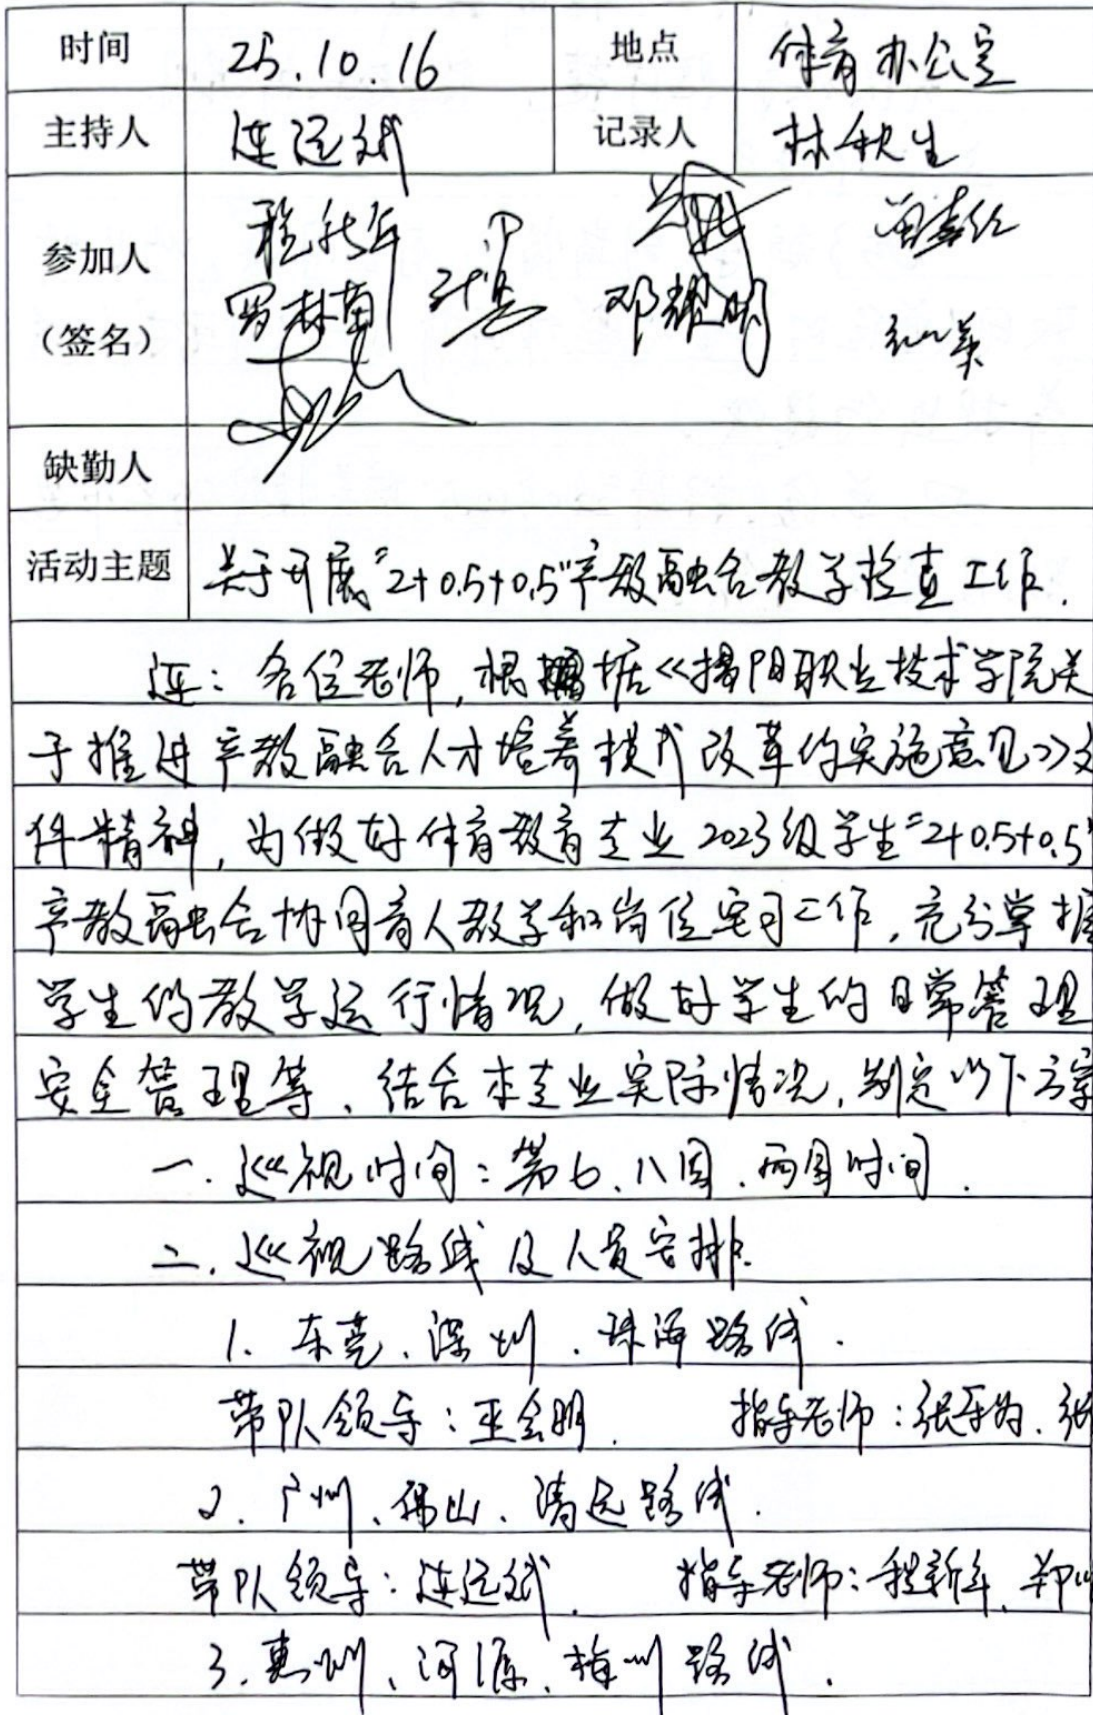 时间 25.10.16 地点 体育办公室
主持人 连远斌 记录人 林秋生
参加人
(签名)
程新年
罗林南 邓耀明
缺勤人
活动主题 关于开展“2+0.5+0.5”产教融合教学检查工作.
连:各位老师,根据《揭阳职业技术学院关
于推进产教融合人才培养模式改革的实施意见》文
件精神,为做好体育教育专业2023级学生“2+0.5+0.5”
产教融合协同育人教学和岗位实习工作,充分掌握
学生的教学运行情况,做好学生的日常管理
安全管理等、结合本专业实际情况,制定以下方案
一.巡视时间:第七、八周.两周时间.
二.巡视路线及人员安排.
1.东莞、深圳、珠海路线.
带队领导: 指导老师:张
2.广州、佛山、清远路线.
带队领导:连远斌. 指导老师:程新年、郑
3.惠州、河源、梅州路线.